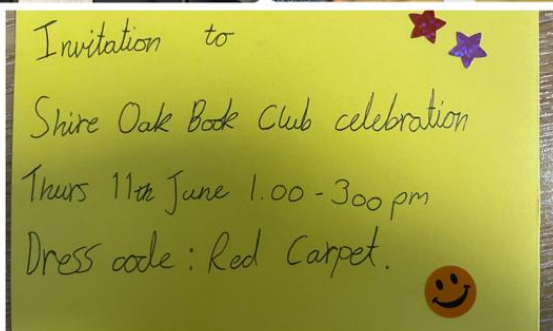 Invitation to
Shire Oak Book Club celebration
Thurs 11th June 1.00 - 300 pm
Dress code : Red Carpet.